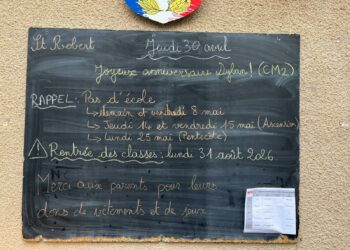 St Robert
Jeudi 30 avril
Joyeux anniversaire Dylan! (CM2)
RAPPEL: Pas d'école
↳ demain et vendredi 8 mai
↳ Jeudi 14 et vendredi 15 mai (Ascension)
↳ Lundi 25 mai (Pentcôte)
⚠ Rentrée des classes: lundi 31 août 2026
Merci aux parents pour leurs
dons de vêtements et de jeux